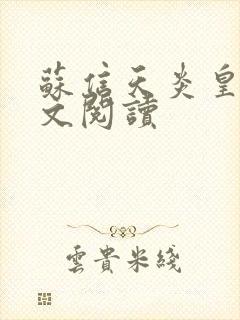 蘇信天炎皇
文閱讀
雲貴米綫